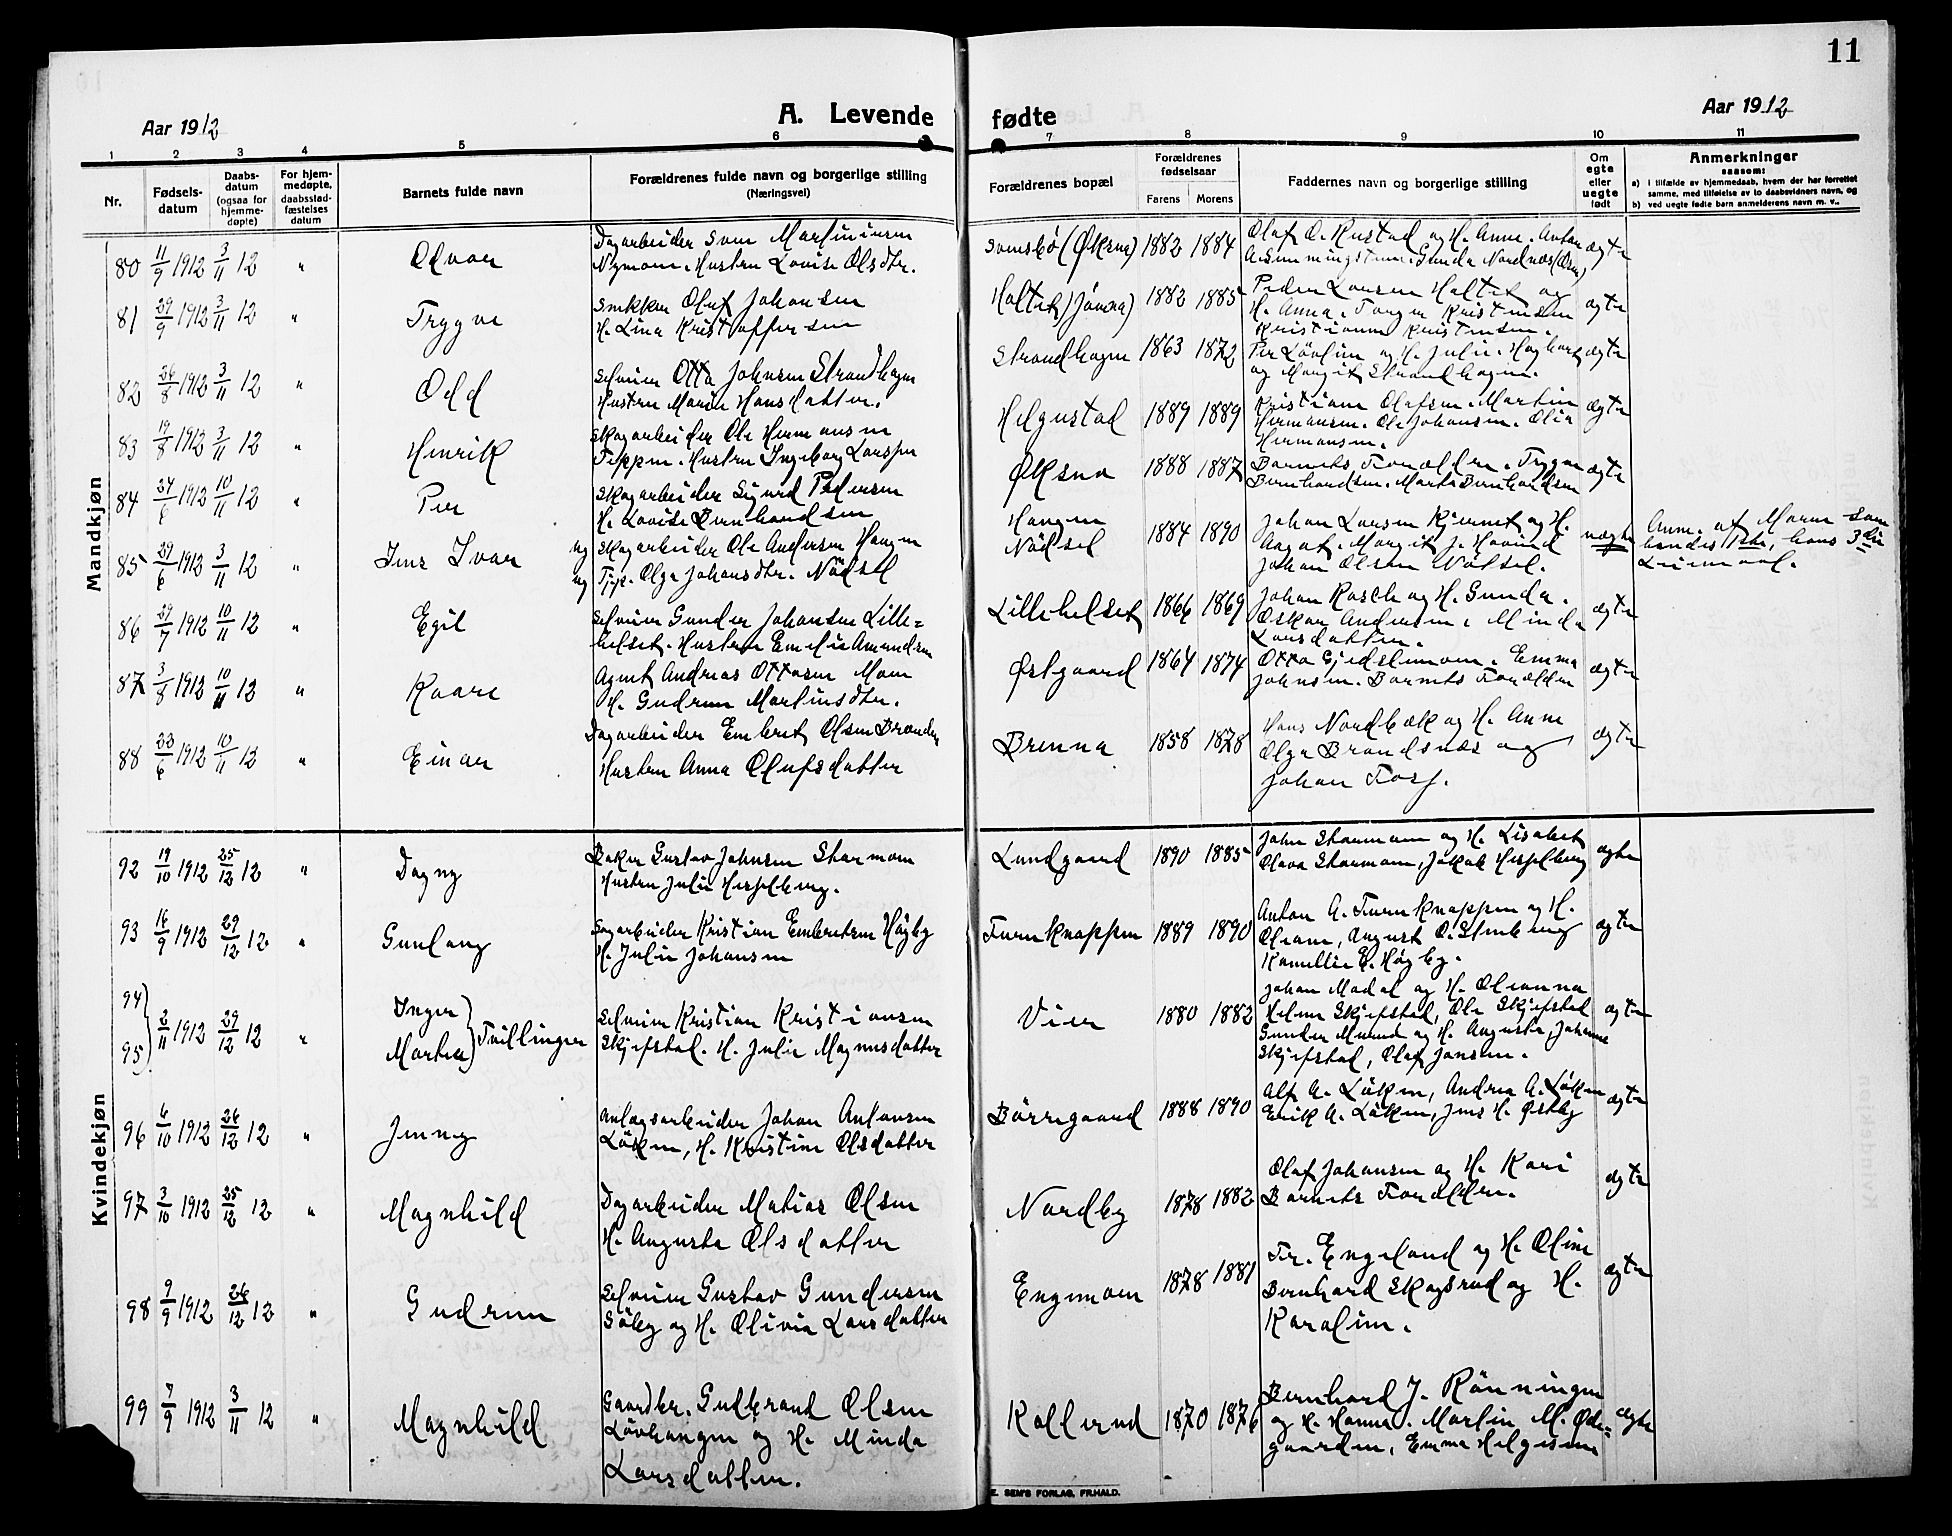 11
Aar 1912
A. Levende fødte
Aar 1912
1 2 3 4 5 6 7 8 9 10 11
Nr.
Fødsels-
datum
Daabs-
datum
(ogsaa for
hjemme-
døpte)
For hjem-
medøpte,
daabsstad-
fæstelses
datum
Barnets fulde navn
Forældrenes fulde navn og borgerlige stilling
(Næringsvei)
Forældrenes bopæl
Forældrenes
fødselsaar
Farens Morens
Faddernes navn og borgerlige stilling
Om
egte
eller
uegte
født
Anmerkninger
saasom:
a) i tilfælde av hjemmedaab, hvem der har forrettet
samme, med tilføielse av to daabsvidners navn, og
b) ved uegte fødte barn anmelderens navn m. v..
Mandkjøn
80 11/9 1912 3/11 12 " Olvar
Dagarbeider Martinius
Hustru Lovise Olsdtr.
(Øksna) 1882 1884
Olaf O. Rustad og H. Anne. Anton
Gunda Nordnæs (Øksna)
ægte
81 29/9 1912 3/11 12 " Trygve
Snekker Olaf Johansen
H. Lina Kristoffersen
Holtet (Jømna) 1882 1885
Peder Larsen Holtet og
H. Anna. Torger Kristensen
Kristiane Kristensen.
ægte
82 26/8 1912 3/11 12 " Odd
Selveier Otto Johnsen Strandhagen
Hustru Marie Hansdatter.
Strandhagen 1863 1872
Per Lövlien og H. Julie. Hagbart
og Margit Strandhagen.
ægte
83 19/8 1912 3/11 12 " Henrik
Skogarbeider Ole Hermansen
Teppen. Hustru Ingeborg Larsen
Helgustad 1889 1889
Kristiane Olafsen. Martin
Hermansen. Ole Johansen. Olia
Hermansen.
ægte
84 24/6 1912 10/11 12 " Per
Skogarbeider Sigurd Pedersen
H. Lovise Bernhardsen
Øksna 1888 1887
Barnets Forældre. Trygve
Bernhardsen. Marta Bernhardsen
ægte
85 29/6 1912 3/11 12 " Jens Ivar
ug Skogarbeider Ole Andersen Haugen
ug Tjp. Olga Johansdtr. Nödsel
Haugen
Nödsel 1884 1890
Johan Larsen Kjernet og H.
Aagot. Margit J. Hovind
Johan Olsen Nödsel.
uægte
Anm. af Moren som
hendes 1ste, hans 3die
Leiermaal.
86 29/7 1912 10/11 12 " Egil
Selveier Gunder Johansen Lille=
helset. Hustru Emelie Amundsen
Lillehelset 1866 1869
Johan Rasch og H. Gunda.
Oskar Andersen. Minda
Larsdatter.
ægte
87 3/8 1912 10/11 12 " Kaare
Agent Andreas Ottosen Moen
H. Gudrun Martinsdtr.
Østgaard 1864 1874
Otto Gjedslemoen. Emma
Johnsen. Barnets Forældre
ægte
88 23/6 1912 10/11 12 " Einar
Dagarbeider Embret Olsen Brænden
Hustru Anna Olufsdatter
Brenna 1858 1878
Hans Nordbæk og H. Anne
Olga Brandsnæs og
Johan Torp.
ægte
Kvindekjøn
92 19/10 1912 25/12 12 " Dagny
Baker Gustav Johnsen Starmoen
Hustru Julie Hesselberg.
Lundgaard 1890 1885
John Starmoen og H. Lisabet
Olava Starmoen, Jakob Hesselberg
ægte
93 16/9 1912 29/12 12 " Gunlaug
Sagarbeider Kristian Embretsen Høgby
H. Julie Johansen
Furuknappen 1889 1890
Anton A. Furuknappen og H.
Oleane, August O. Stenberg
Kamillie E. Høgby.
ægte
94
95 2/11 1912 29/12 12 " Inger
Marta Tvillinger
Selveier Kristian Kristiansen
Skjefstad. H. Julie Magnusdatter
Vier 1880 1882
Johan Madal og H. Oleanna
Helene Skjefstad, Ole Skjefstad
Gunder og H. Augusta, Johanne
Skjefstad, Olaf Jansen.
ægte
96 6/10 1912 26/12 12 " Jenny
Anlægsarbeider Johan Antonsen
Løken, H. Kristine Olsdatter
Børregaard 1888 1890
Alf A. Løken, Andrea A. Løken
Erik A. Løken, Jens H. Østby
ægte
97 3/10 1912 25/12 12 " Magnhild
Dagarbeider Matias Olsen
H. Augusta Olsdatter
Nordby 1878 1882
Olaf Johansen og H. Kari
Barnets Forældre.
ægte
98 9/9 1912 26/12 12 " Gudrun
Selveier Gustav Gundersen
Søby og H. Olivia Larsdatter
Engemoen 1878 1881
Fr. Engeland og H. Oline
Bernhard Skogsrud og H.
Karoline.
ægte
99 7/9 1912 3/11 12 " Magnhild
Gaardbr. Gudbrand Olsen
Løvhaugen og H. Minda
Larsdatter.
Kollerud 1870 1876
Bernhard J. Rønningen
og H. Hanna. Martin M. Øde=
gaarden, Emma Helgesen
ægte
E. SEM'S FORLAG, FR.HALD.